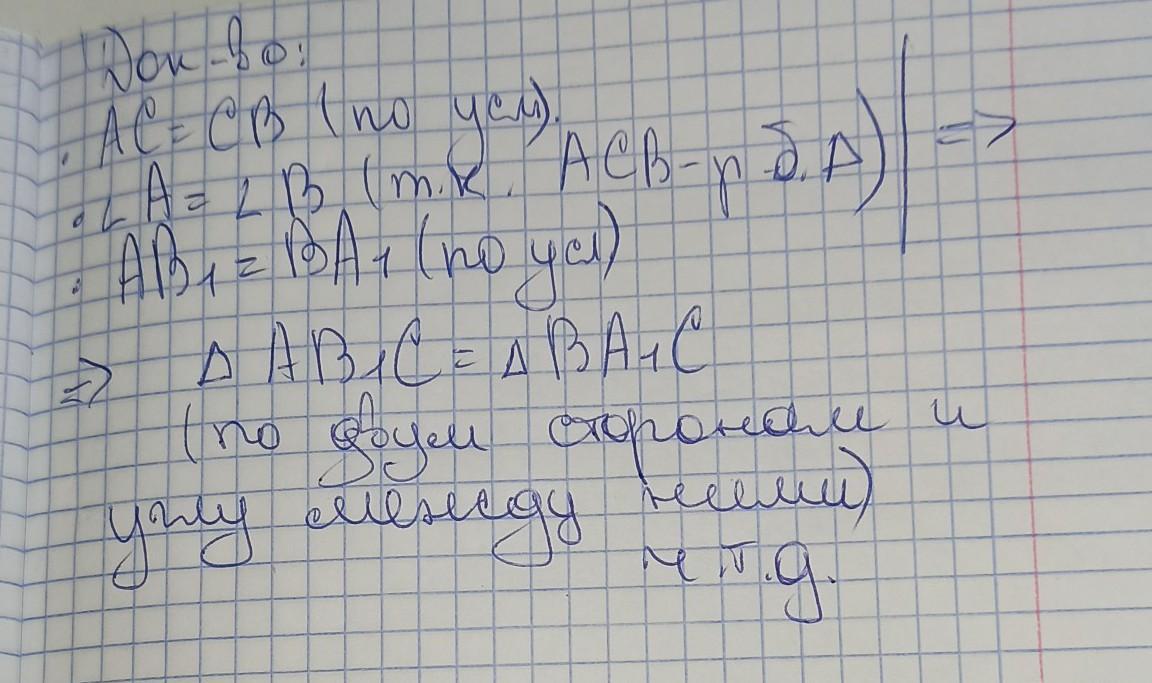 Док-во:
AC = CB (по усл).
∠A = ∠B (т.к. ACB - р.б. Δ) | =>
AB₁ = BA₁ (по усл)
=> Δ AB₁C = Δ BA₁C
(по двум сторонам и
углу между ними)
ч т.д.